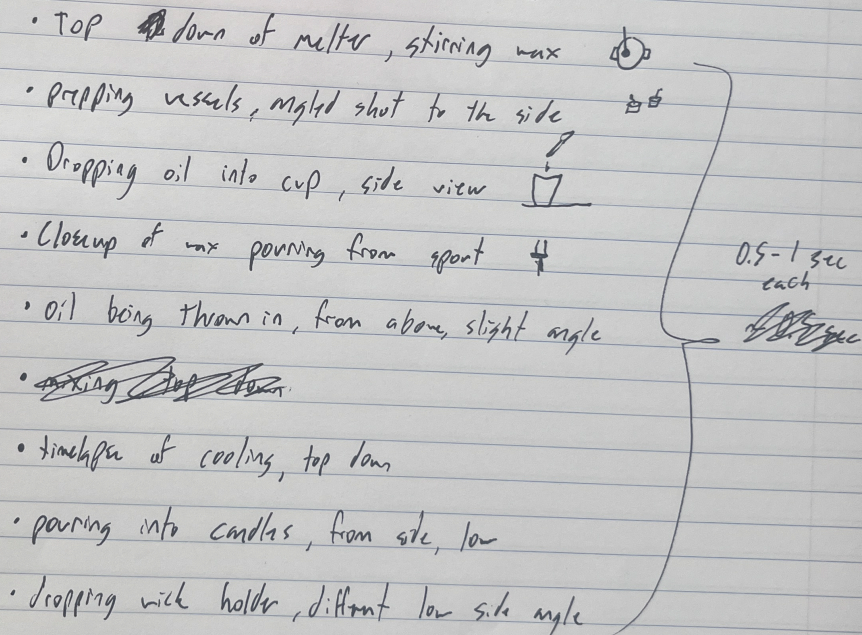 • Top down of melter, stirring wax
• prepping vessels, angled shot to the side
• Dropping oil into cup, side view
• Closeup of wax pouring from spout
0.5-1 sec
each
• oil being thrown in, from above, slight angle
• mixing top down
• timelapse of cooling, top down
• pouring into candles, from side, low
• dropping wick holder, diffrent low side angle